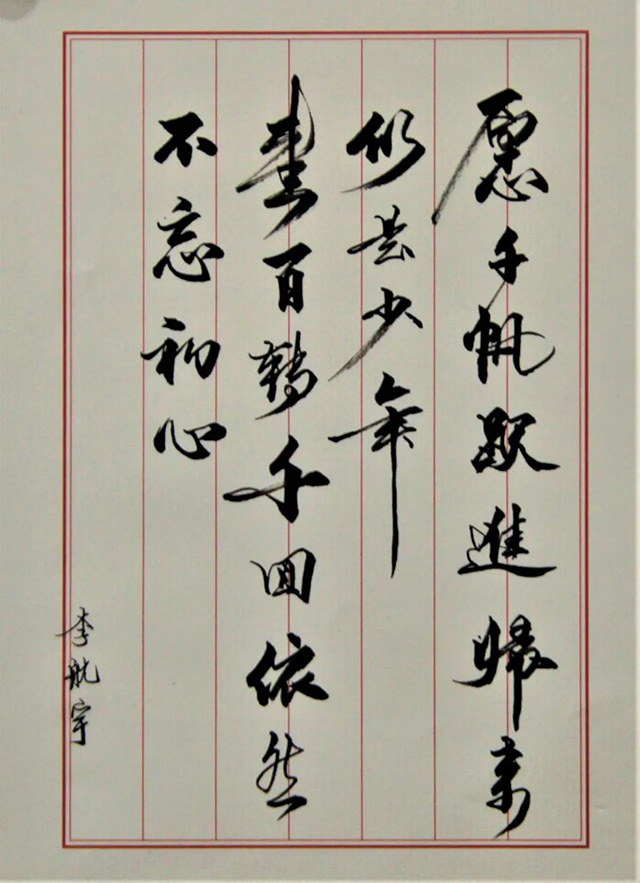 愿千帆跃進歸来
仍是少年
百轉千回依然
不忘初心
李航宇